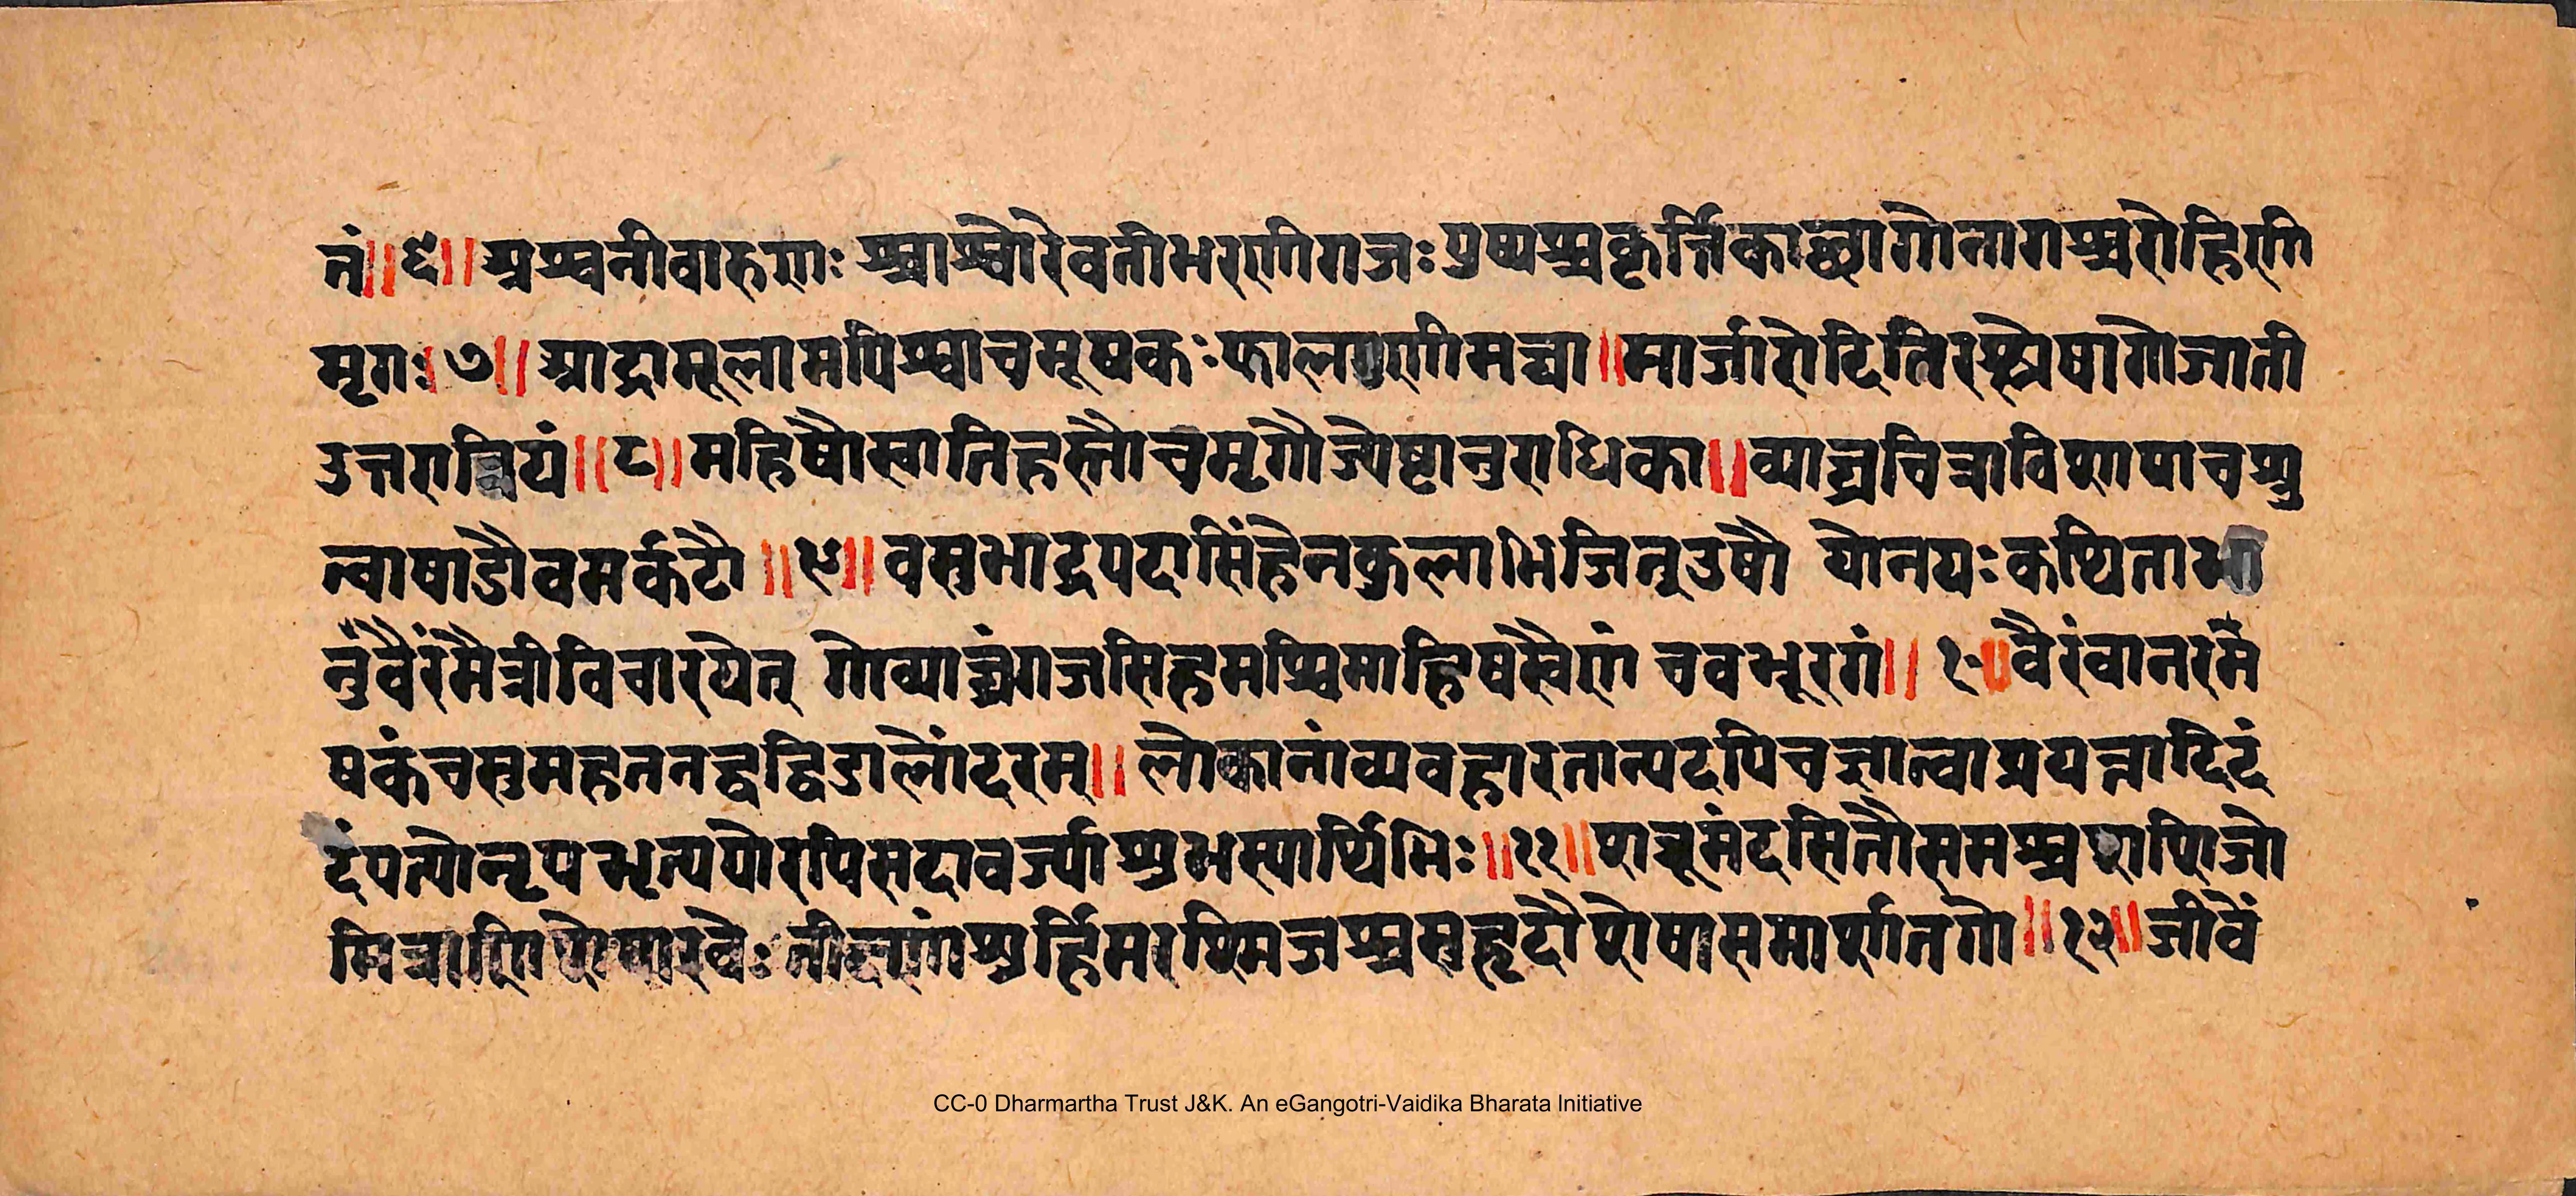 नं॥६॥अश्वनीवारुणः श्वाश्वौरेवतीभरणीगजः पुष्यश्चकृर्त्तिकाछागोनागश्चरोहिणी
मृगः७॥आद्रामूलामपिश्वाचमूषकःफाल्गुणीमघा॥मार्जारोदितिरश्लेषागोजाती
उत्तरात्रियं॥८॥महिषौस्वातिहस्तौचमृगौज्येष्टानुराधिका॥व्याघ्रचित्राविशाषाचश्रु
त्वाषाडौवमर्कटौ॥९॥वसुभाद्रपदासिंहेनकुलाभिजित्उषौ योनयःकथिताभा
नुंवैरंमैत्रीविचारयेत् गोव्याघ्रंगजसिहमश्विमाहिषस्वैणं चवभ्रूरगं॥१०॥वैरंवानरमै
षकंचसुमहननद्वद्विडालोंदरम्॥लोकानांव्यवहारतान्यदपिचज्ञात्वाप्रयत्नादिदं
दंपत्योनृपभृत्ययोरपिसदावर्ज्याशुभस्यार्थिभिः॥११॥शत्रूमंदसितौसमश्चशशिजो
मित्राणिशेषारवेः तीक्ष्णांशुर्हिमरश्मिजश्चसुहृदौशेषासमाशीतगो॥१२॥जीवें
CC-0 Dharmartha Trust J&K. An eGangotri-Vaidika Bharata Initiative